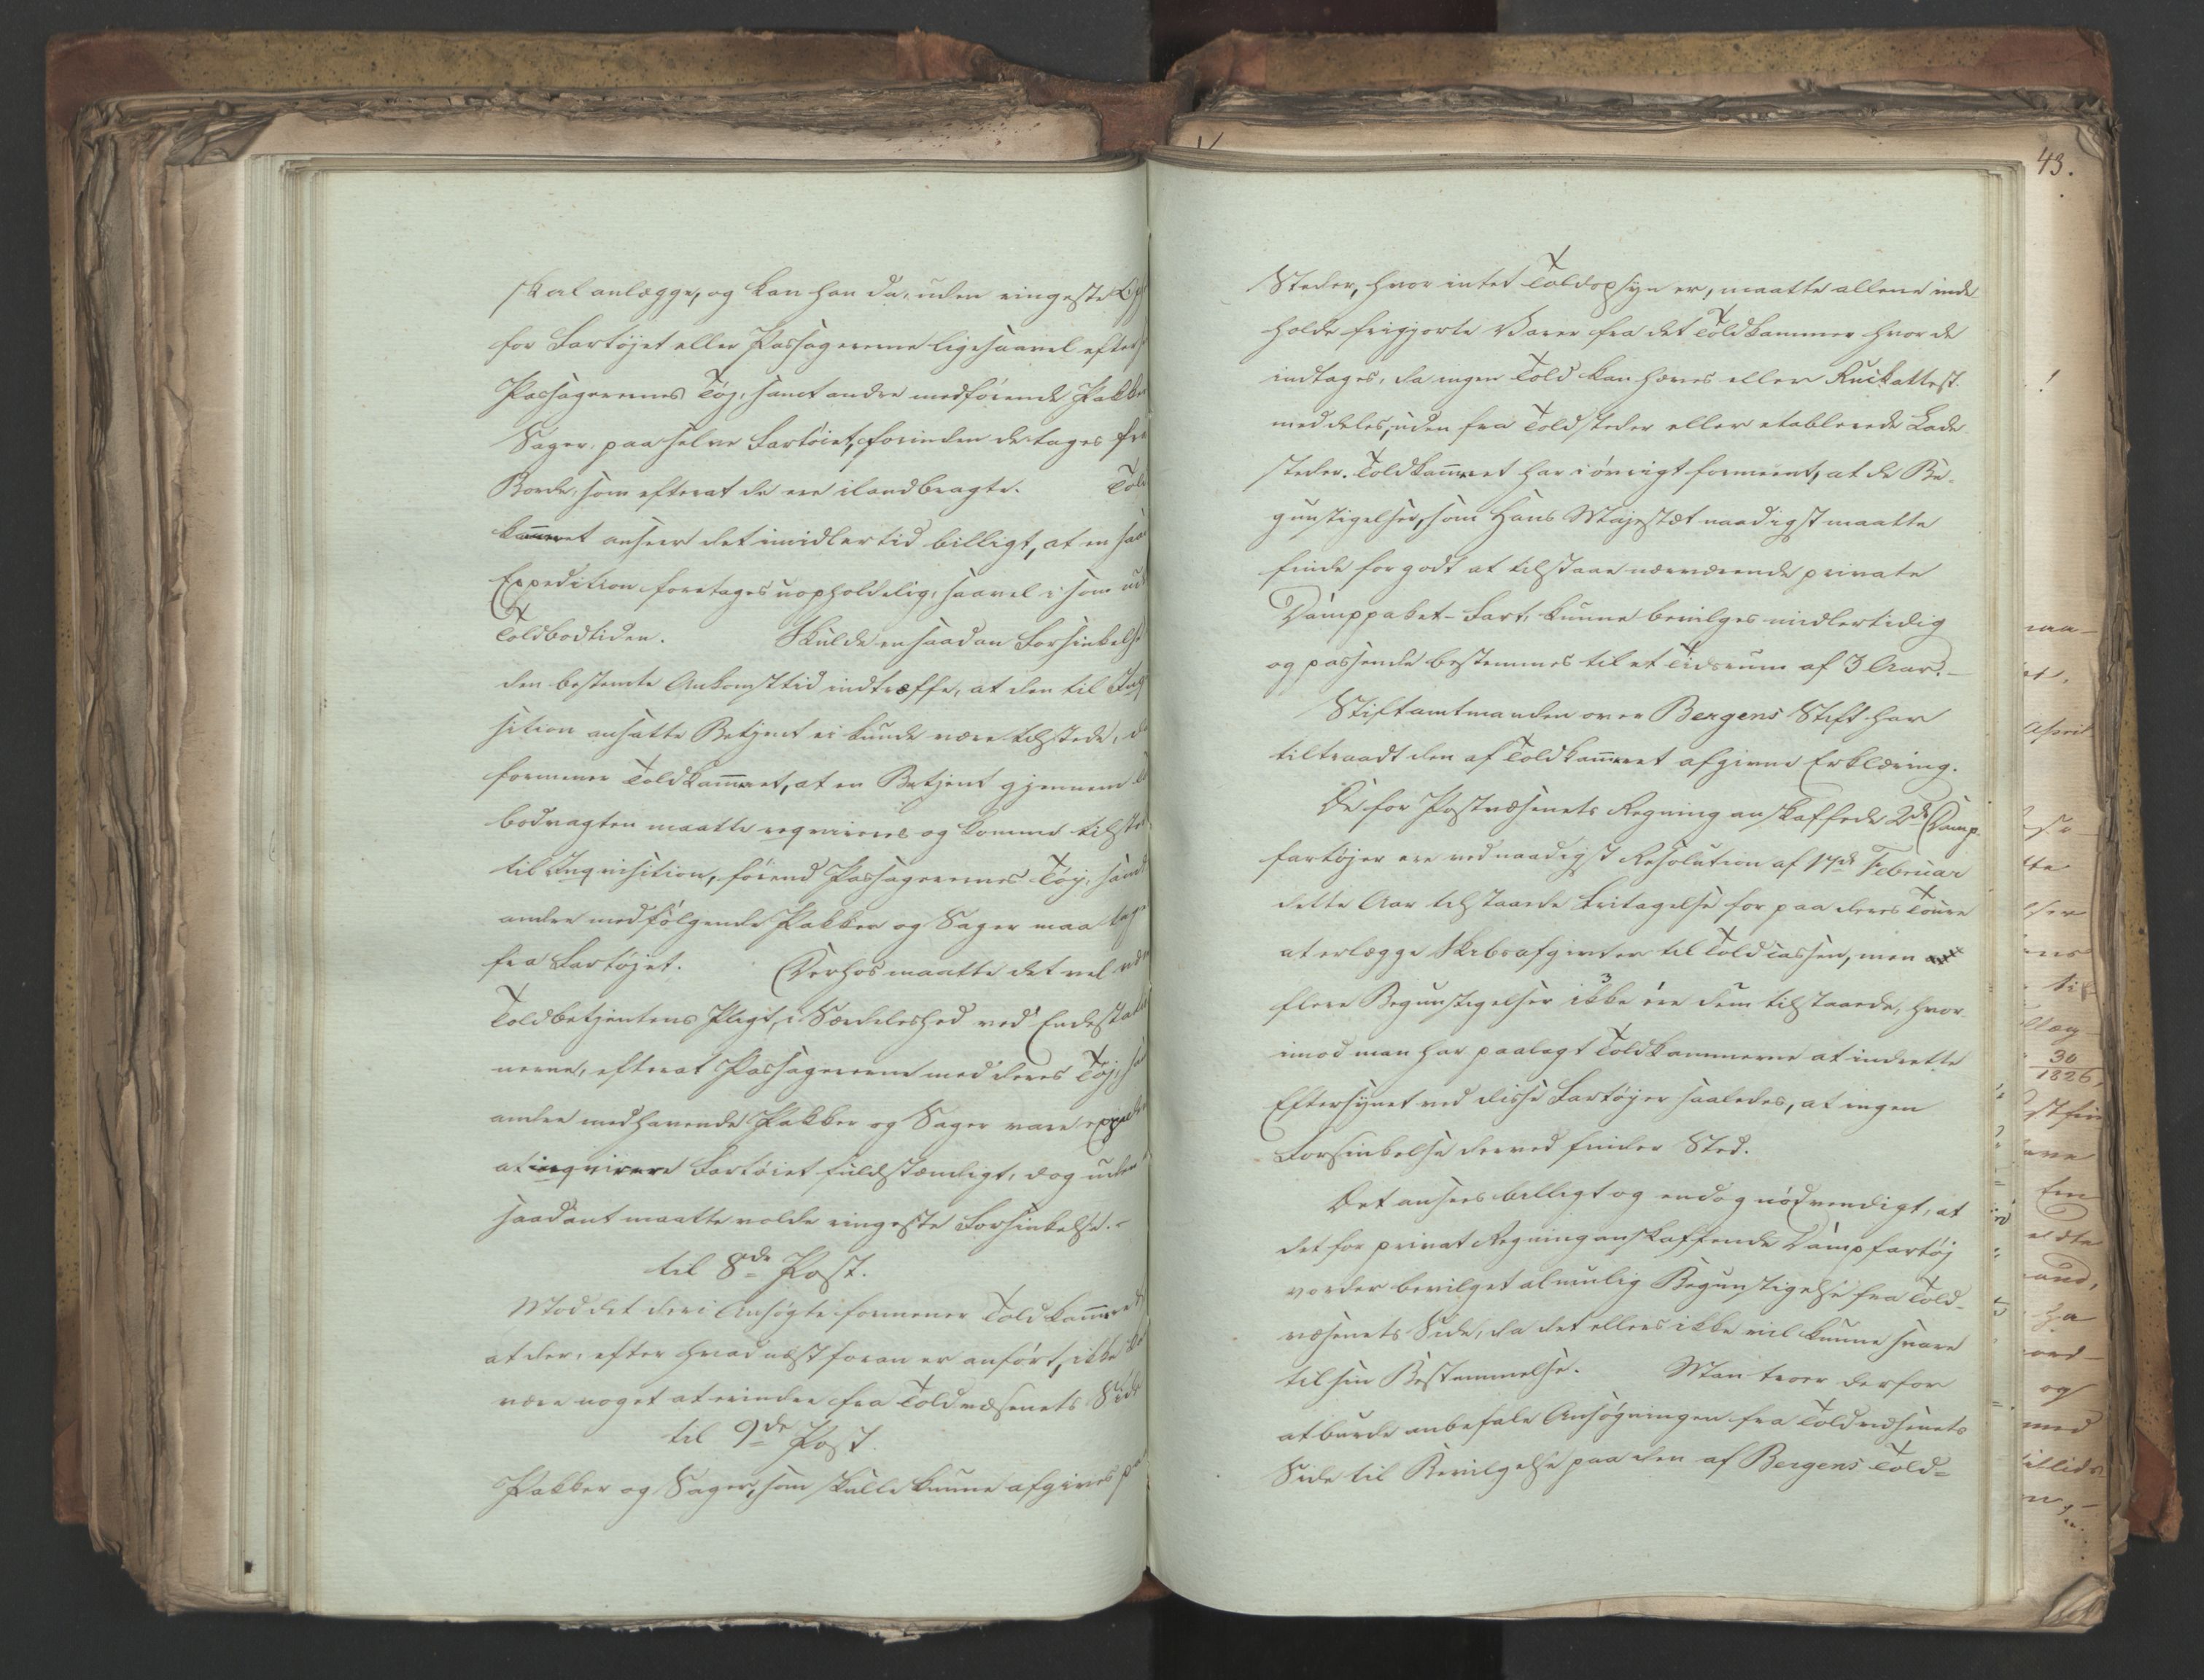 skal anlægge, og kan han da, uden ringeste
for Fartøjet eller Passagererne ligesaavel efter
Passagerernes Tøj, samt andre medførende Pakker
Sager, paa selve Fartøiet, forinden de tages fra
Borde, som efterat de ere ilandbragte. Told
kammeret anseer det imidlertid billigt, at en saa
Expedition foretages uopholdelig, saavel i som ud
Toldbodtiden. Skulde en saadan Forsinkelse
den bestemte Ankomsttid indtræffe, at den til Inqvi
sition ansatte Betjent ei kunde være tilstede, da
formener Toldkammeret, at en Betjent gjennem
bodvagten maatte reqvireres og komme tilstede
til Inqvisition, førend Passagerernes Tøj, samt
andre medfølgende Pakker og Sager maa tages
fra Fartøjet. Derhos maatte det vel være
Toldbetjentens Pligt, i Særdeleshed ved Endestatio
nerne, efterat Passagererne med deres Tøj,
andre medhavende Pakker og Sager vare expederede
at inqvirere Fartøiet fuldstændigt, dog uden
saadant maatte volde ringeste Forsinkelse.-
til 8de Post.
Mod det deri Ansøgte formener Toldkammeret
at der, efter hvad næst foran er anført, ikke
være noget at erindre fra Toldvæsenets Side
til 9de Post.
Pakker og Sager, som skulle kunne afgives paa
43.
Steder, hvor intet Toldopsyn er, maatte allene inde
holde frigjorte Varer fra det Toldkammer hvor de
indtages, da ingen Told kan hæves eller Ruckattest
meddeles, uden fra Toldsteder eller etablerede Lade
steder. Toldkammeret har i øvrigt formeent, at de Be-
gunstigelser, som Hans Majestæt naadigst maatte
finde for godt at tilstaae nærværende private
Damppaket-Fart, kunne bevilges midlertidig
og passende bestemmes til et Tidsrum af 3 Aar.-
Stiftamtmanden over Bergens Stift har
tiltraadt den af Toldkammeret afgivne Erklæring.
De for Postvæsenets Regning anskaffede 2de Damp-
fartøjer ere ved naadigst Resolution af 17de Februar
dette Aar tilstaaede Fritagelse for paa deres Toure
at erlægge Skibsafgivter til Toldcassen, men
flere Begunstigelser ikke ere dem tilstaaede, hvor-
imod man har paalagt Toldkammerne at indrette
Eftersynet ved disse Fartøjer saaledes, at ingen
Forsinkelse derved finder Sted.
Det ansees billigt og endog nødvendigt, at
det for privat Regning anskaffende Dampfartøj
vorder bevilget al mulig Begunstigelse fra Told-
væsenets Side, da det ellers ikke vil kunne svare
til sin Bestemmelse. Man troer derfor
at burde anbefale Ansøgningen fra Toldvæsenets
Side til Bevilgelse paa den af Bergens Told=